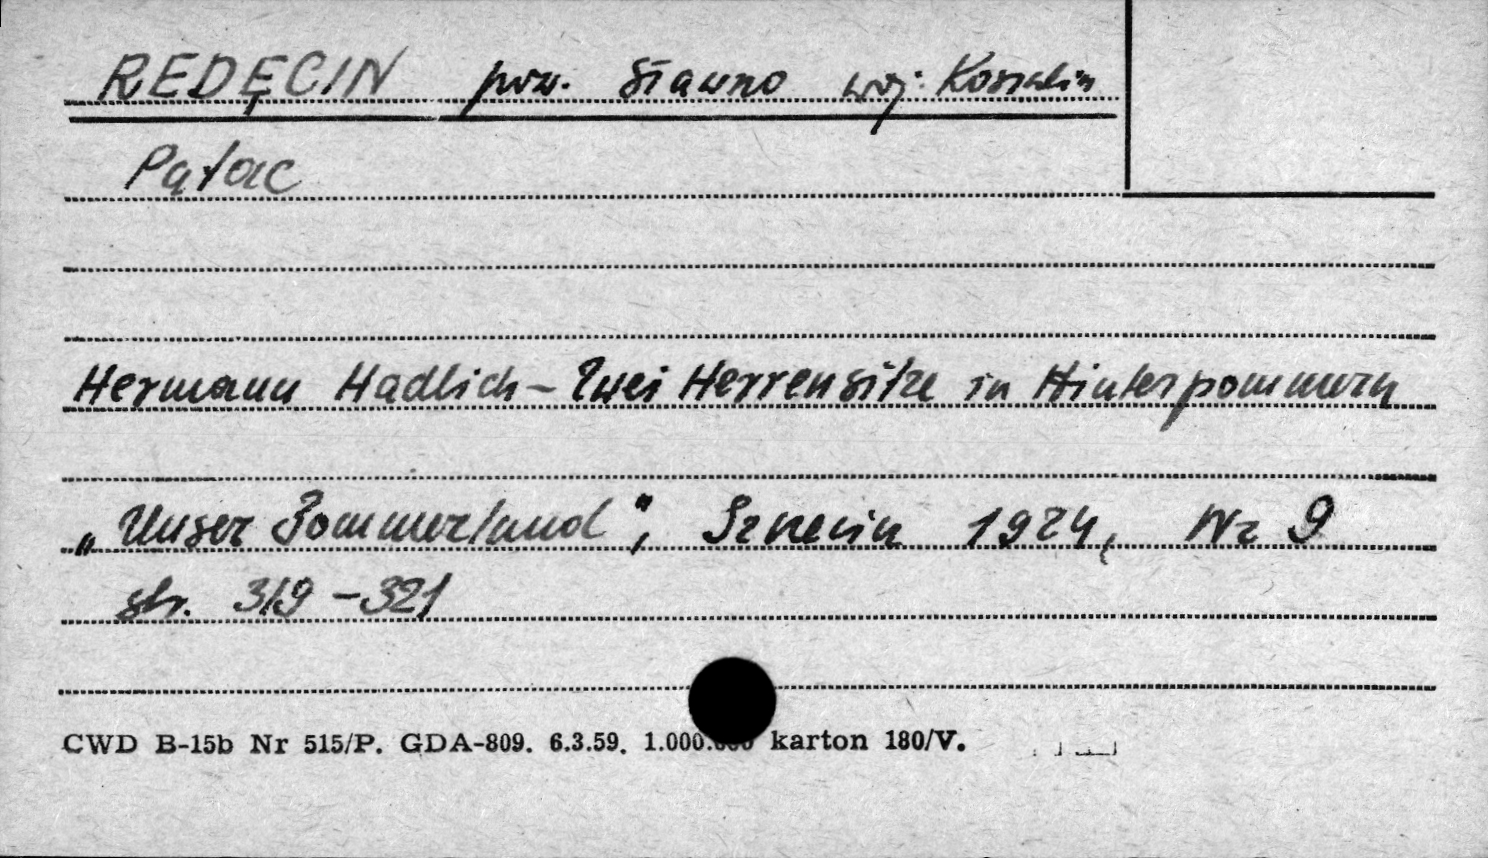 REDĘCIN pow. Sławno woj. Koszalin
Pałac
Hermann Hadlich – Zwei Herrensitze in Hinterpommern
„Unser Pommerland", Szczecin 1924, Nr 9
str. 319 – 321
CWD B-15b Nr 515/P. GDA-809. 6.3.59. 1.000.000 karton 180/V.